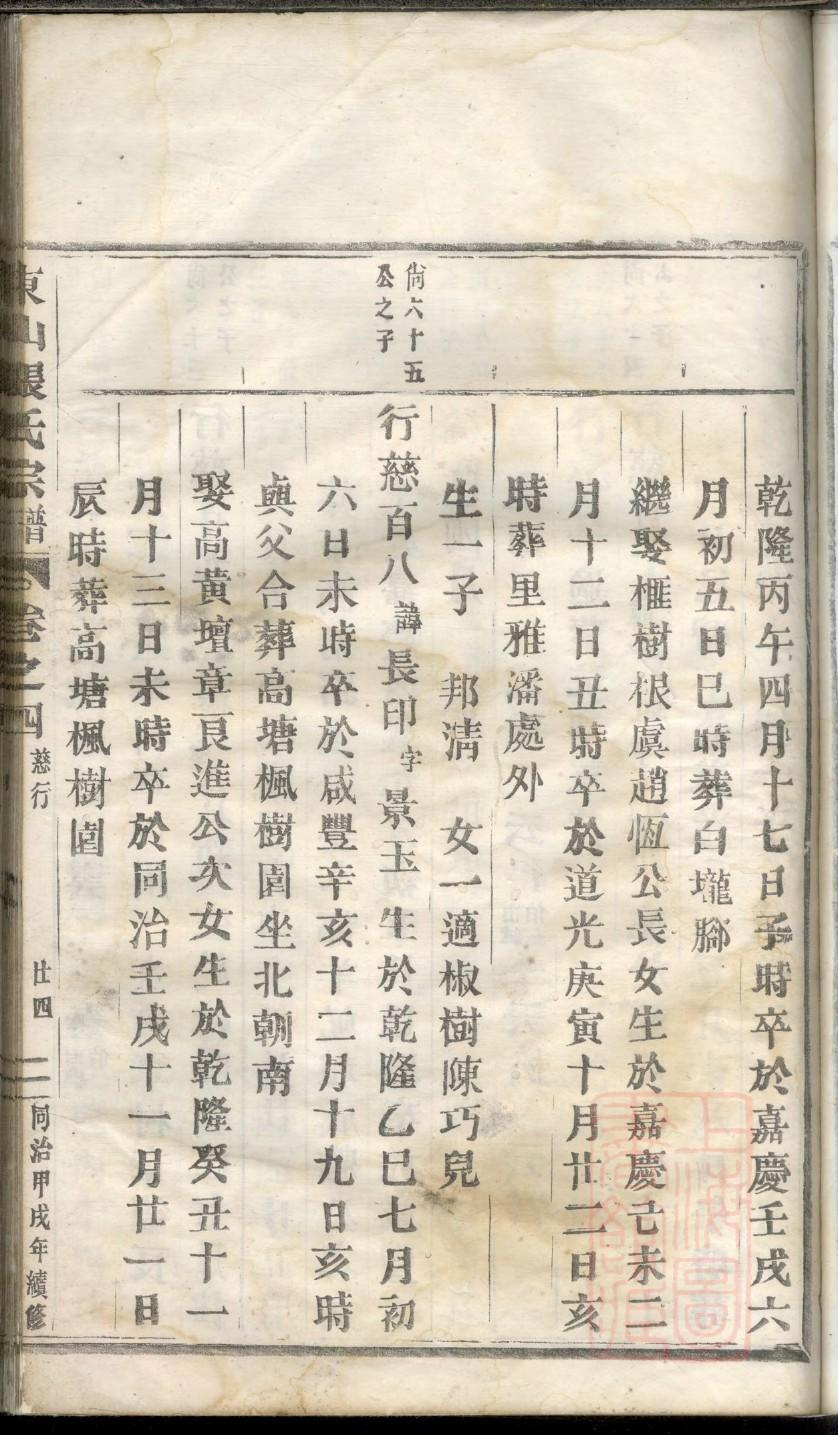 乾隆丙午四月十七日子時卒於嘉慶壬戌六
月初五日巳時葬白壠腳
繼娶榧樹根虞趙恆公長女生於嘉慶己未二
月十二日丑時卒於道光庚寅十月廿二日亥
時葬里雅潘處外
生一子 邦清 女一適椒樹陳巧兒
尙六十五
公之子
行慈百八諱長印字景玉生於乾隆乙巳七月初
六日未時卒於咸豐辛亥十二月十九日亥時
與父合葬高塘楓樹園坐北朝南
娶高黃壇章艮進公次女生於乾隆癸丑十一
月十三日未時卒於同治壬戌十一月廿一日
辰時葬高塘楓樹園
東山張氏宗譜 卷之四 慈行 廿四 同治甲戌年續修